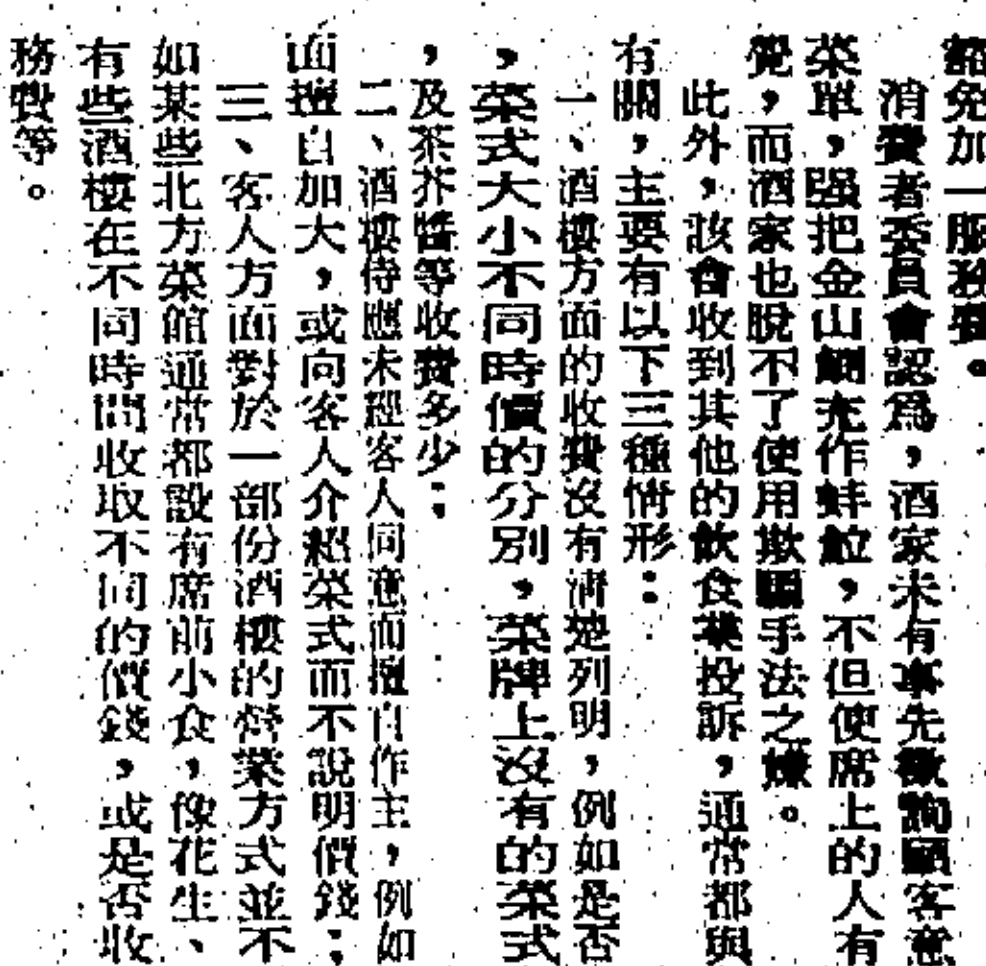 豁免加一服務費。
消費者委員會認爲，酒家未有事先徵詢顧客意
菜單，强把金山鯛充作蚌蚾，不但使席上的人有
覺，而酒家也脫不了使用欺騙手法之嫌。
此外，該會收到其他的飲食業投訴，通常都與
有關，主要有以下三種情形：
一、酒樓方面的收費沒有清楚列明，例如是否
，菜式大小不同時價的分別，菜牌上沒有的菜式
，及茶芥醬等收費多少；
二、酒樓侍應未經客人同意而擅自作主，例如
面擅自加大，或向客人介紹菜式而不說明價錢；
三、客人方面對於一部份酒樓的營業方式並不
如某些北方菜館通常都設有席前小食，像花生、
有些酒樓在不同時間收取不同的價錢，或是否收
務費等。